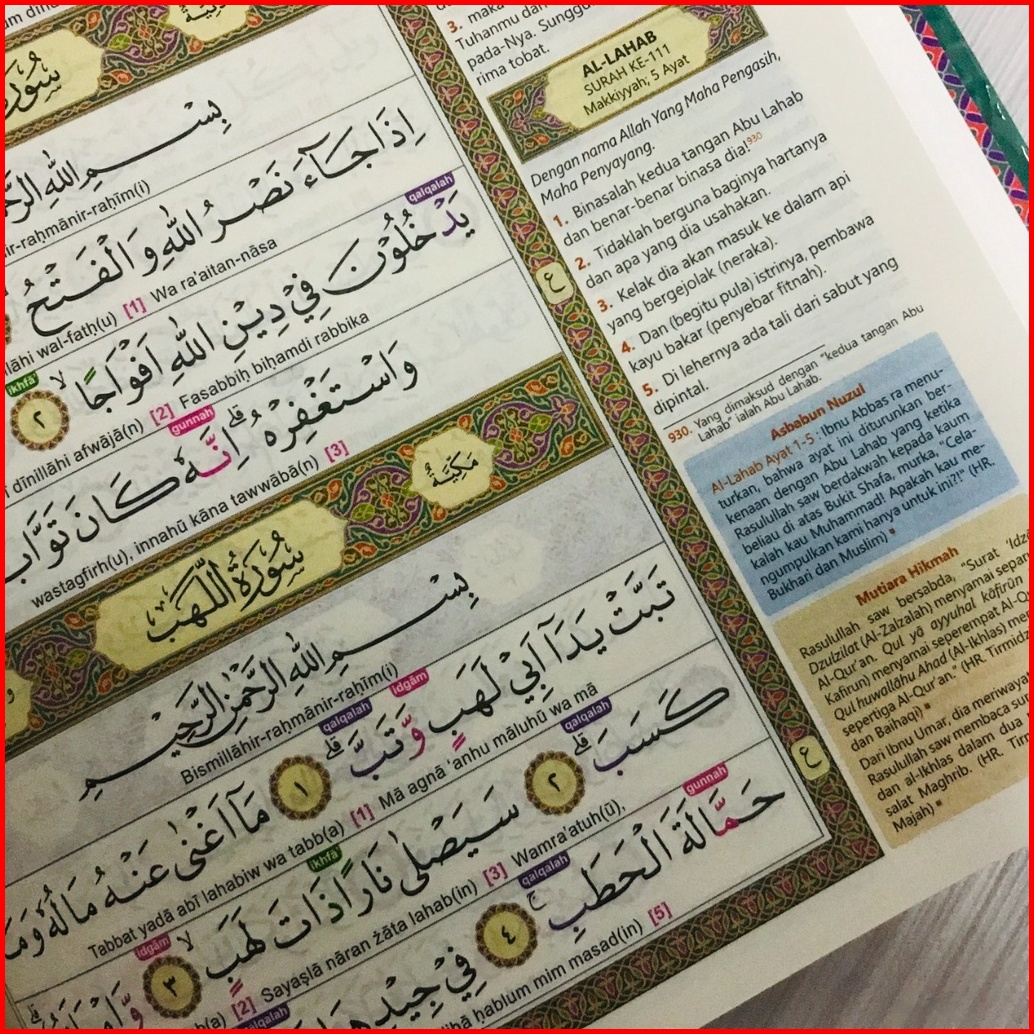 سُوْرَةُ
بِسْمِ اللّٰهِ
ir-raḥmānir-raḥīm(i)
اِذَا جَاۤءَ نَصْرُ اللّٰهِ وَالْفَتْحُ
lāhi wal-fatḥ(u) [1] Wa ra'aitan-nāsa
qalqalah
يَدْخُلُوْنَ فِيْ دِيْنِ اللّٰهِ اَفْوَاجًا ۙ ٢
ikhfā
ī dīnillāhi afwājā(n) [2] Fasabbiḥ biḥamdi rabbika
gunnah
وَاسْتَغْفِرْهُ ۗ اِنَّهٗ كَانَ تَوَّاب
wastagfirh(u), innahū kāna tawwābā(n) [3]
سُوْرَةُ اللَّهَب
مَكِّيَّة
بِسْمِ اللّٰهِ الرَّحْمٰنِ الرَّحِيْمِ
Bismillāhir-raḥmānir-raḥīm(i)
idgām
qalqalah
تَبَّتْ يَدَآ اَبِيْ لَهَبٍ وَّتَبَّ ۗ ١
Tabbat yadā abī lahabiw wa tabb(a) [1] Mā agnā ‘anhu māluhū wa mā
مَآ اَغْنٰى عَنْهُ مَالُهٗ وَمَا
qalqalah
كَسَبَ ۗ ٢ سَيَصْلٰى نَارًا ذَاتَ لَهَبٍ ۙ ٣
ikhfā
idgām
b(a) [2] Sayaṣlā nāran żāta lahab(in) [3] Wamra'atuh(ū),
gunnah
qalqalah
حَمَّالَةَ الْحَطَبِ ۚ ٤
فِيْ جِيْدِهَا
qalqalah
ihā ḥablum mim masad(in) [5]
ع
ع
3. maka
Tuhanmu dan
pada-Nya. Sunggu
rima tobat.
AL-LAHAB
SURAH KE-111
Makkiyyah; 5 Ayat
Dengan nama Allah Yang Maha Pengasih,
Maha Penyayang.
1. Binasalah kedua tangan Abu Lahab
dan benar-benar binasa dia!930
2. Tidaklah berguna baginya hartanya
dan apa yang dia usahakan.
3. Kelak dia akan masuk ke dalam api
yang bergejolak (neraka).
4. Dan (begitu pula) istrinya, pembawa
kayu bakar (penyebar fitnah).
5. Di lehernya ada tali dari sabut yang
dipintal.
930. Yang dimaksud dengan "kedua tangan Abu
Lahab" ialah Abu Lahab.
Asbabun Nuzul
Al-Lahab Ayat 1-5 : Ibnu Abbas ra menu-
turkan, bahwa ayat ini diturunkan ber-
kenaan dengan Abu Lahab yang ketika
Rasulullah saw berdakwah kepada kaum
beliau di atas Bukit Shafa, murka, "Cela-
kalah kau Muhammad! Apakah kau me-
ngumpulkan kami hanya untuk ini?!" (HR.
Bukhari dan Muslim)
Mutiara Hikmah
Rasulullah saw bersabda, "Surat 'Idza
Dzulzilat (Al-Zalzalah) menyamai separ
Al-Qur'an. Qul yā ayyuhal kāfirūn
Kafirun) menyamai seperempat Al-Qu
Qul huwallāhu Ahad (Al-Ikhlas) men
sepertiga Al-Qur'an." (HR. Tirmidz
dan Baihaqi)
Dari Ibnu Umar, dia meriwaya
Rasulullah saw membaca su
dan al-Ikhlas dalam dua
salat Maghrib. (HR. Tirm
Majah)